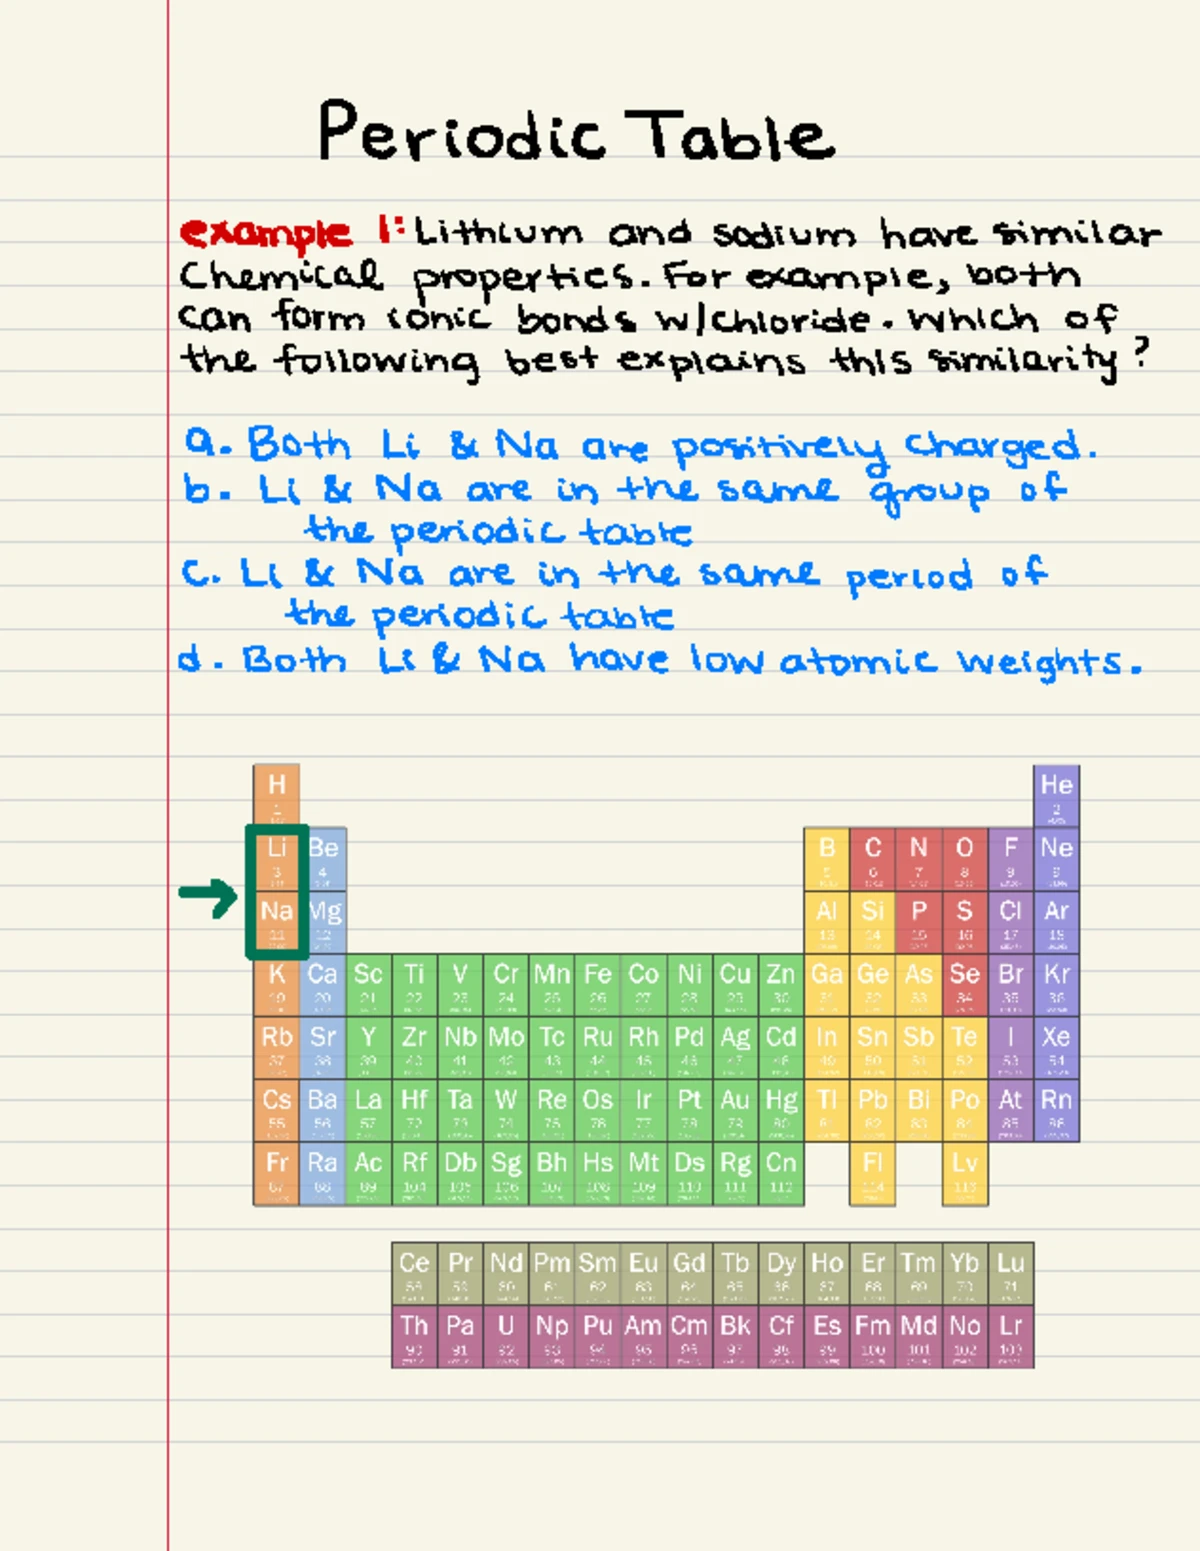 Periodic Table
example 1: Lithium and sodium have similar
Chemical properties. For example, both
can form ionic bonds w/chloride. Which of
the following best explains this similarity?
a. Both Li & Na are positively charged.
b. Li & Na are in the same group of
the periodic table
c. Li & Na are in the same period of
the periodic table
d. Both Li & Na have low atomic weights.
H He
1 2
Li Be B C N O F Ne
3 4 5 6 7 8 9
Na Mg Al Si P S Cl Ar
11 12 13 14 15 16 17 18
K Ca Sc Ti V Cr Mn Fe Co Ni Cu Zn Ga Ge As Se Br Kr
19 20 21 22 23 24 25 26 27 28 29 30 31 32 33 34 35 36
Rb Sr Y Zr Nb Mo Tc Ru Rh Pd Ag Cd In Sn Sb Te I Xe
37 38 39 40 41 42 43 44 45 46 47 48 49 50 51 52 53 54
Cs Ba La Hf Ta W Re Os Ir Pt Au Hg Tl Pb Bi Po At Rn
55 56 57 72 73 74 75 76 77 78 79 80 81 82 83 84 85 86
Fr Ra Ac Rf Db Sg Bh Hs Mt Ds Rg Cn Fl Lv
87 88 89 104 105 106 107 108 109 110 111 112 114
Ce Pr Nd Pm Sm Eu Gd Tb Dy Ho Er Tm Yb Lu
58 59 60 61 62 63 64 65 66 67 68 69 70 71
Th Pa U Np Pu Am Cm Bk Cf Es Fm Md No Lr
90 91 92 93 94 95 96 97 98 99 100 101 102 103